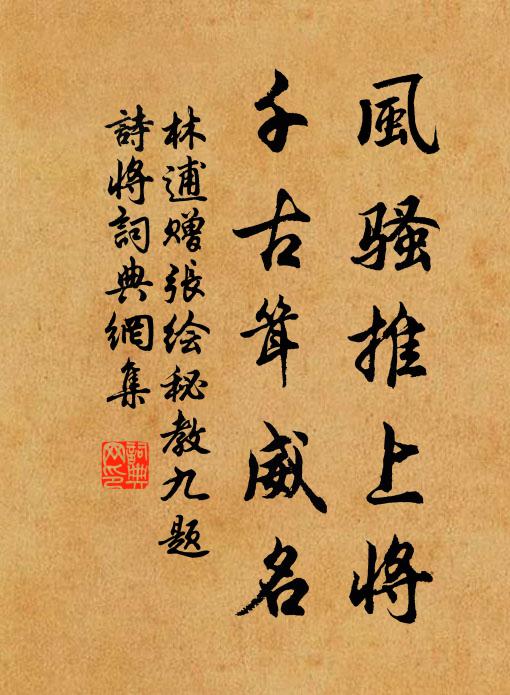 風騷推上將
千古耸威名
林逋赠張绘秘教九题
詩將詞典網集
詞典